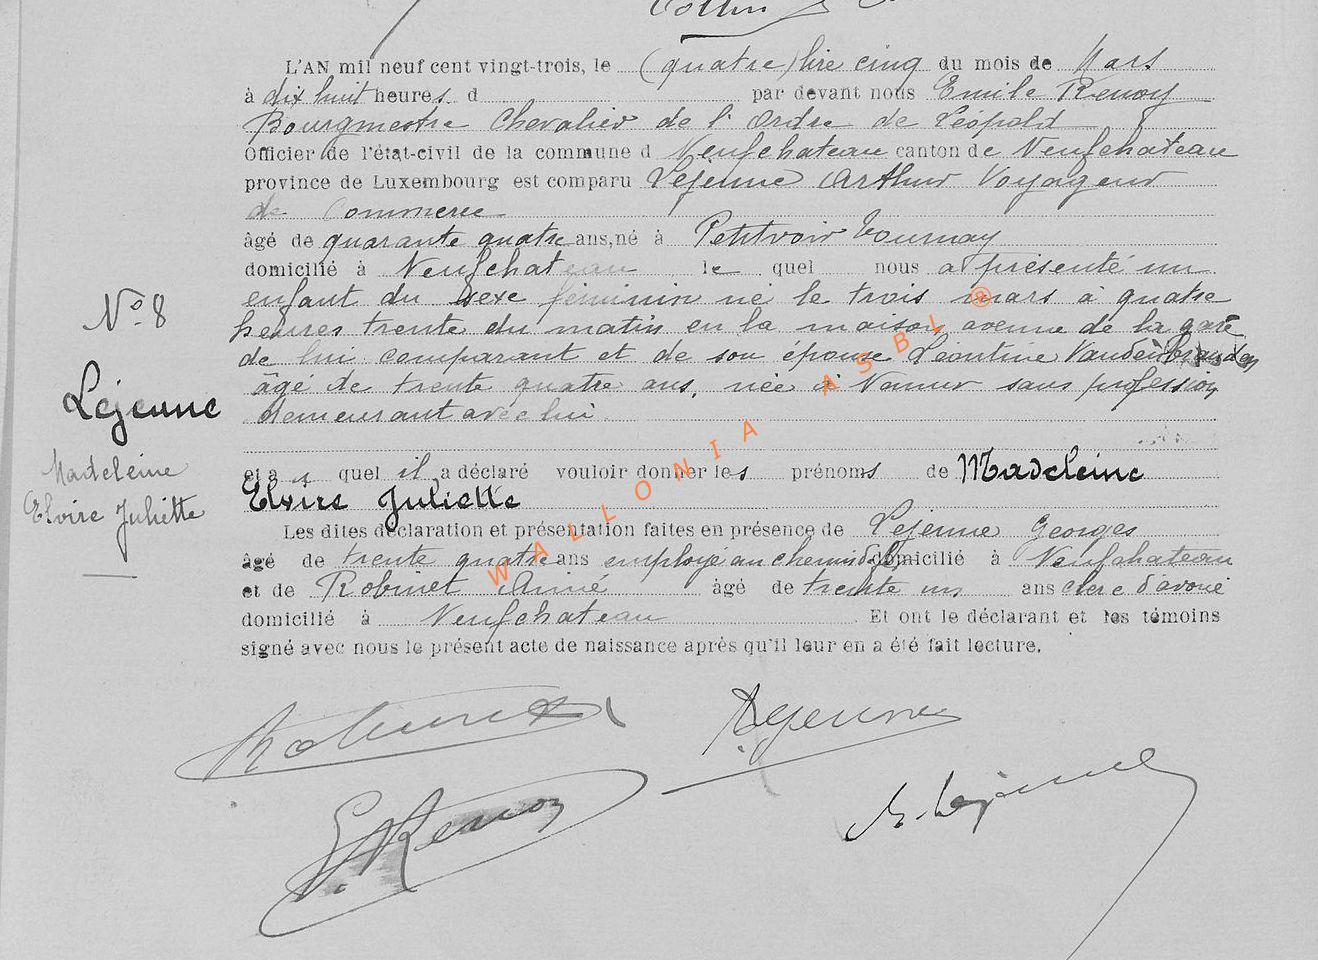 Collin
L'AN mil neuf cent vingt-trois, le (quatre) lire cinq du mois de Mars
à dix huit heures d par devant nous Emile Renoy
Bourgmestre Chevalier de l'Ordre de Léopold
Officier de l'état-civil de la commune d Neufchateau canton de Neufchateau
province de Luxembourg est comparu Lejeune Arthur Voyageur
de Commerce
âgé de quarante quatre ans, né à Petitvoir Tournay
domicilié à Neufchateau le quel nous a présenté un
enfant du sexe féminin né le trois mars à quatre
heures trente du matin en la maison avenue de la gare
de lui comparant et de son épouse Léontine Vandenbranden
âgé de trente quatre ans, née à Namur sans profession
demeurant avec lui
et a quel il a déclaré vouloir donner les prénoms de Madeleine
Elvire Juliette
Les dites déclaration et présentation faites en présence de Lejeune Georges
âgé de trente quatre ans employé au chemin domicilié à Neufchateau
et de Robinet Aimé âgé de trente un ans clerc d'avoué
domicilié à Neufchateau . Et ont le déclarant et les témoins
signé avec nous le présent acte de naissance après qu'il leur en a été fait lecture.
No 8
Lejeune
Madeleine
Elvire Juliette
WALLONIA ASBL ®
Robinet
Lejeune
E. Renoy
Lejeune